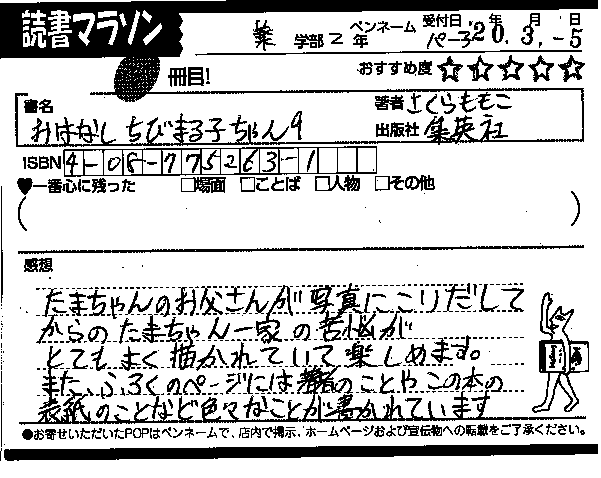 読書マラソン
薬 学部 2 年 ペンネーム ペーコ 受付日 '20. 年 3. 月 -5 日
冊目! おすすめ度 ☆☆☆☆☆
書名 おはなし ちびまる子ちゃん9
著者 さくらももこ
出版社 集英社
ISBN 4-08-775263-1
♥一番心に残った □場面 □ことば □人物 □その他
( )
感想
たまちゃんのお父さんが写真にこりだして
からの たまちゃん一家の苦悩が
とてもよく描かれていて楽しめます。
また、ふろくのページには著者のことや この本の
表紙のことなど色々なことが書かれています
●お寄せいただいたPOPはペンネームで、店内で掲示、ホームページおよび宣伝物への転載をご了承ください。